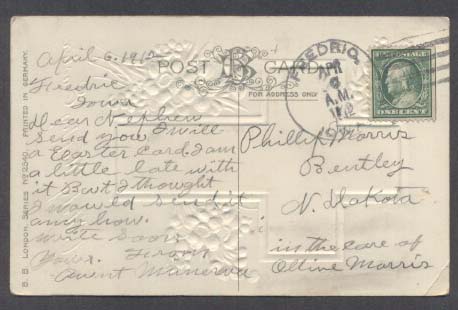 April 6, 1912
Fredric
Iowa
Dear Nephew
I will
send you
a Easter card. I am
a little late with
it But I thought
I would send it
any how.
write soon
Yours. From
Aunt Minerva
POST CARD
FOR ADDRESS ONLY
FREDRIC,
APR
6
A.M.
1912
ONE CENT
Phillip Morris
Bentley
N. Dakota
in the care of
Olline Morris
B. B. LONDON, SERIES PRINTED IN GERMANY.